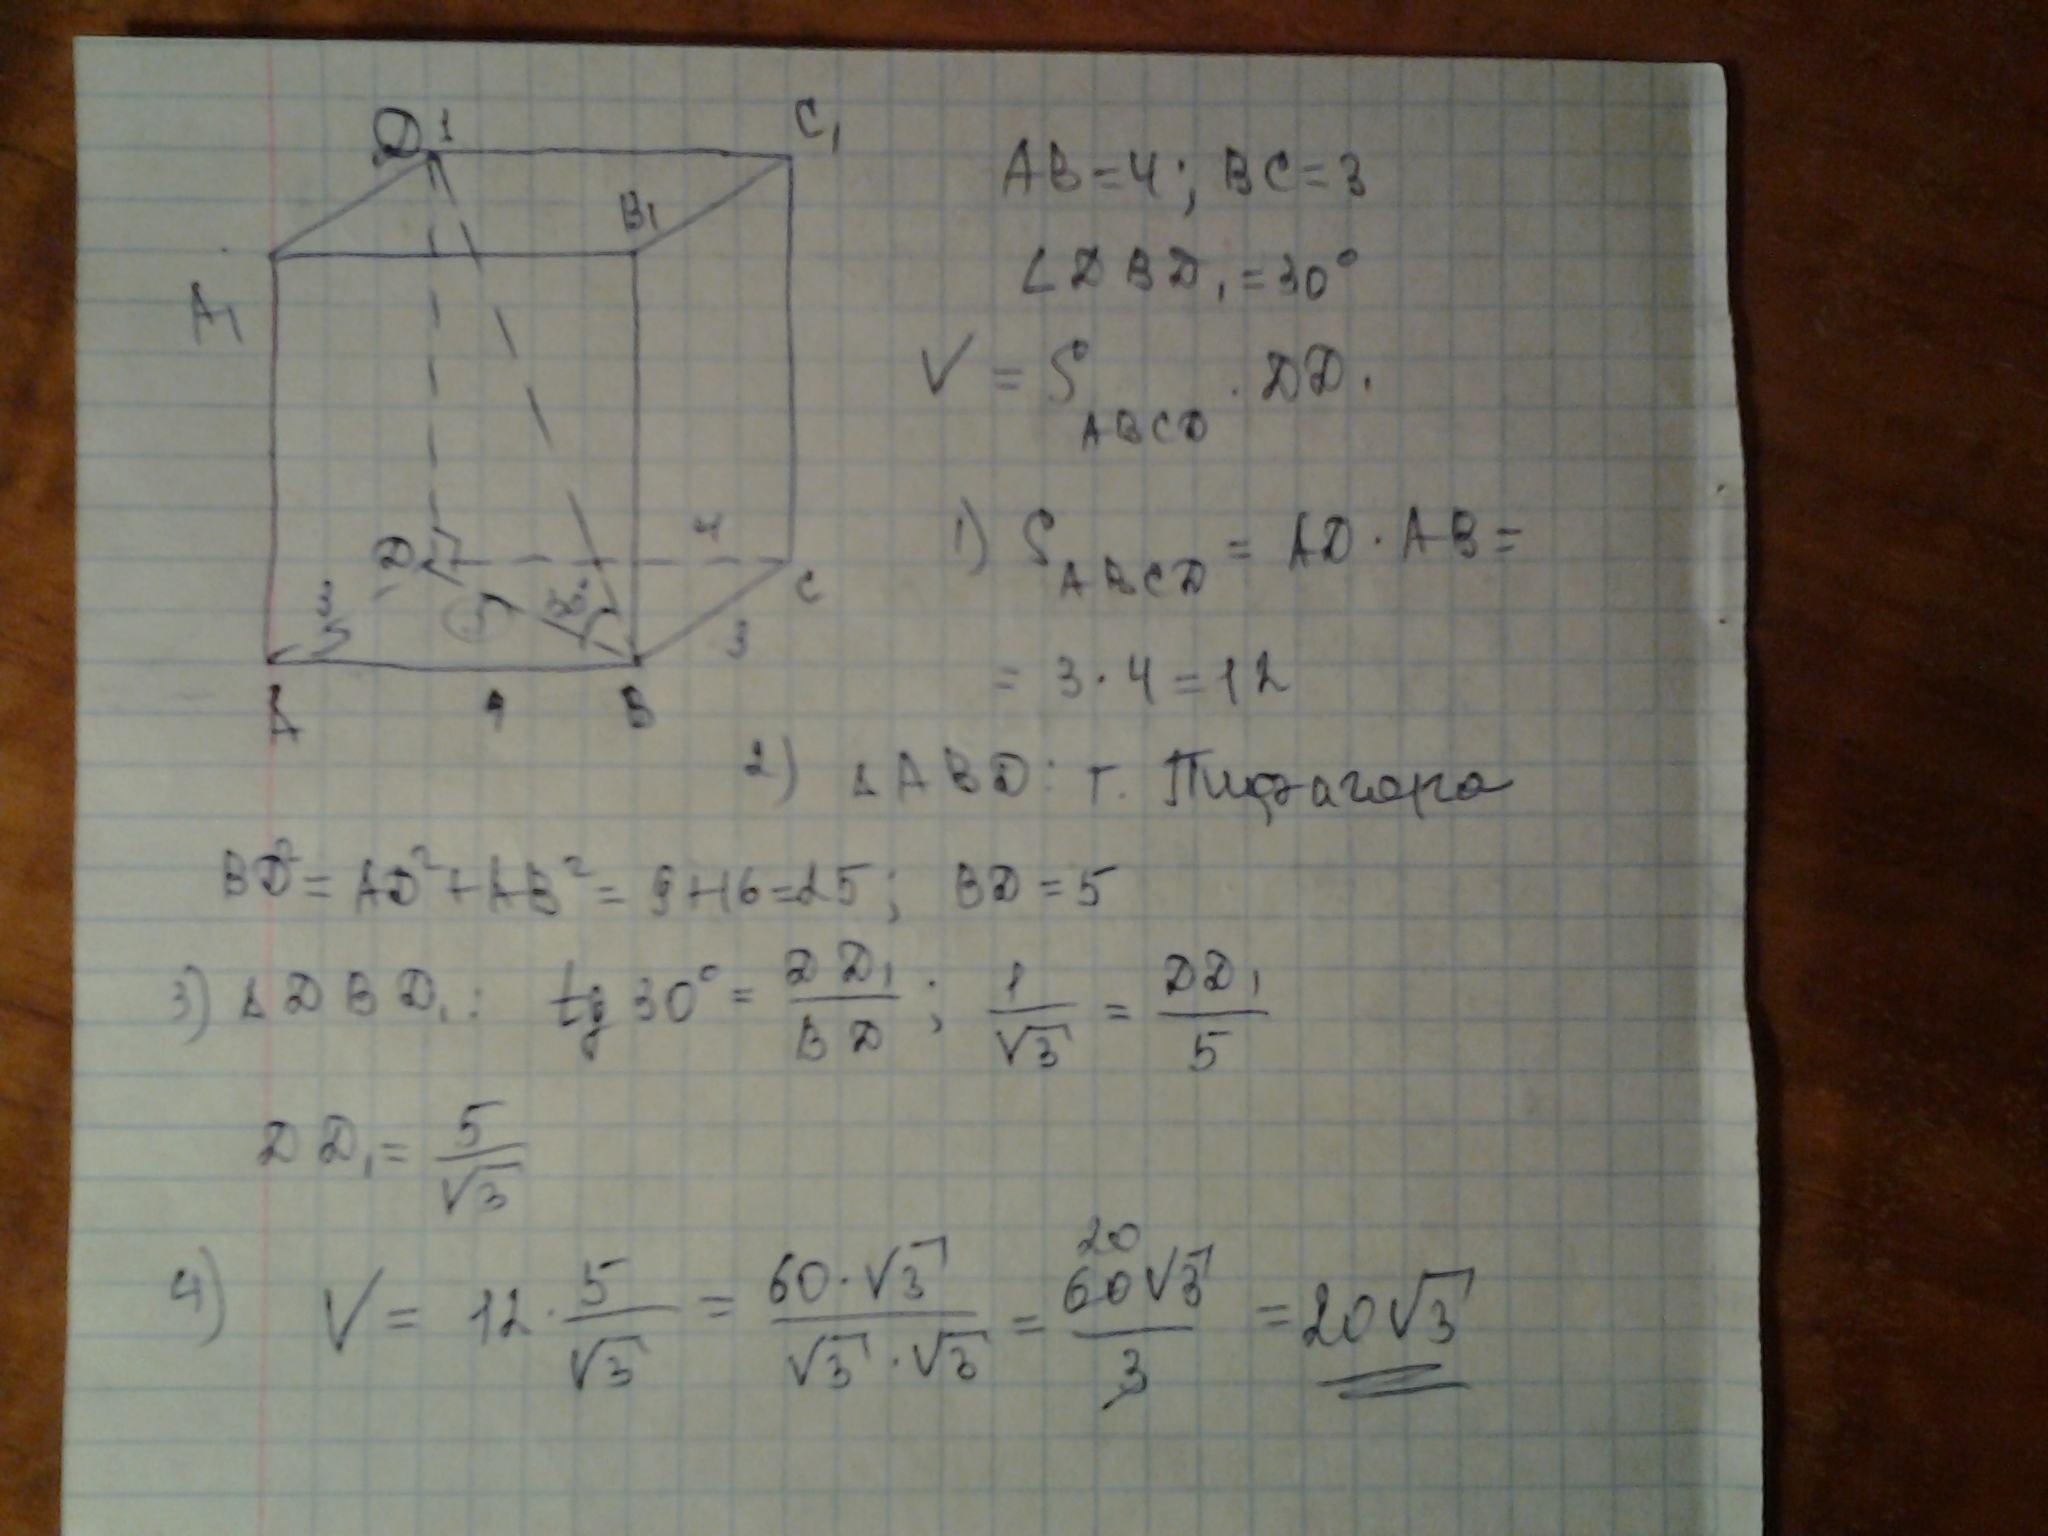 D1
C1
B1
A1
D
4
C
3
5
30°
3
A
4
B
AB=4; BC=3
∠DBD1=30°
V = S ABCD · DD1
1) S ABCD = AD·AB=
= 3·4=12
2) ΔABD: т. Пифагора
BD²= AD²+AB²= 9+16=25; BD=5
3) ΔDBD1: tg 30°= DD1/BD; 1/√3 = DD1/5
DD1= 5/√3
4) V= 12· 5/√3 = 60·√3/√3·√3 = 20 60√3/3 =20√3